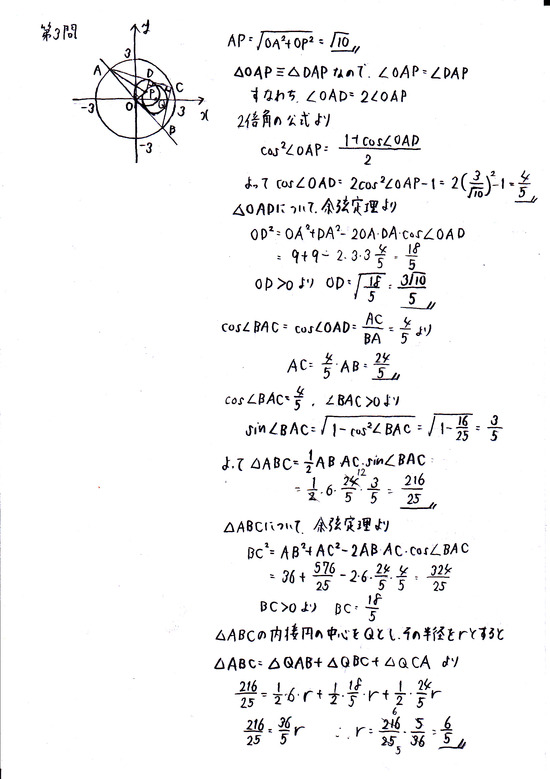 第3問
y
3
A
D
P
C
Q
-3
O
3
x
B
-3
AP=√OA²+OP²=√10
△OAP≡△DAPなので、∠OAP=∠DAP
すなわち、∠OAD=2∠OAP
2倍角の公式より
cos²∠OAP= 1+cos∠OAD/2
よって cos∠OAD=2cos²∠OAP-1=2(3/√10)²-1=4/5
△OADについて、余弦定理より
OD²=OA²+DA²-2OA·DA·cos∠OAD
=9+9-2·3·3 4/5=18/5
OD>0より OD=√18/5=3√10/5
cos∠BAC=cos∠OAD=AC/BA=4/5より
AC=4/5·AB=24/5
cos∠BAC=4/5、∠BAC>0より
sin∠BAC=√1-cos²∠BAC=√1-16/25=3/5
よって△ABC=1/2AB·AC·sin∠BAC
=1/2·6·24/5·3/5=216/25
12
△ABCについて、余弦定理より
BC²=AB²+AC²-2AB·AC·cos∠BAC
=36+576/25-2·6·24/5·4/5=324/25
BC>0より BC=18/5
△ABCの内接円の中心をQとし、その半径をrとすると
△ABC=△QAB+△QBC+△QCAより
216/25=1/2·6·r+1/2·18/5·r+1/2·24/5r
216/25=36/5r ∴r=216/25·5/36=6/5
6
5